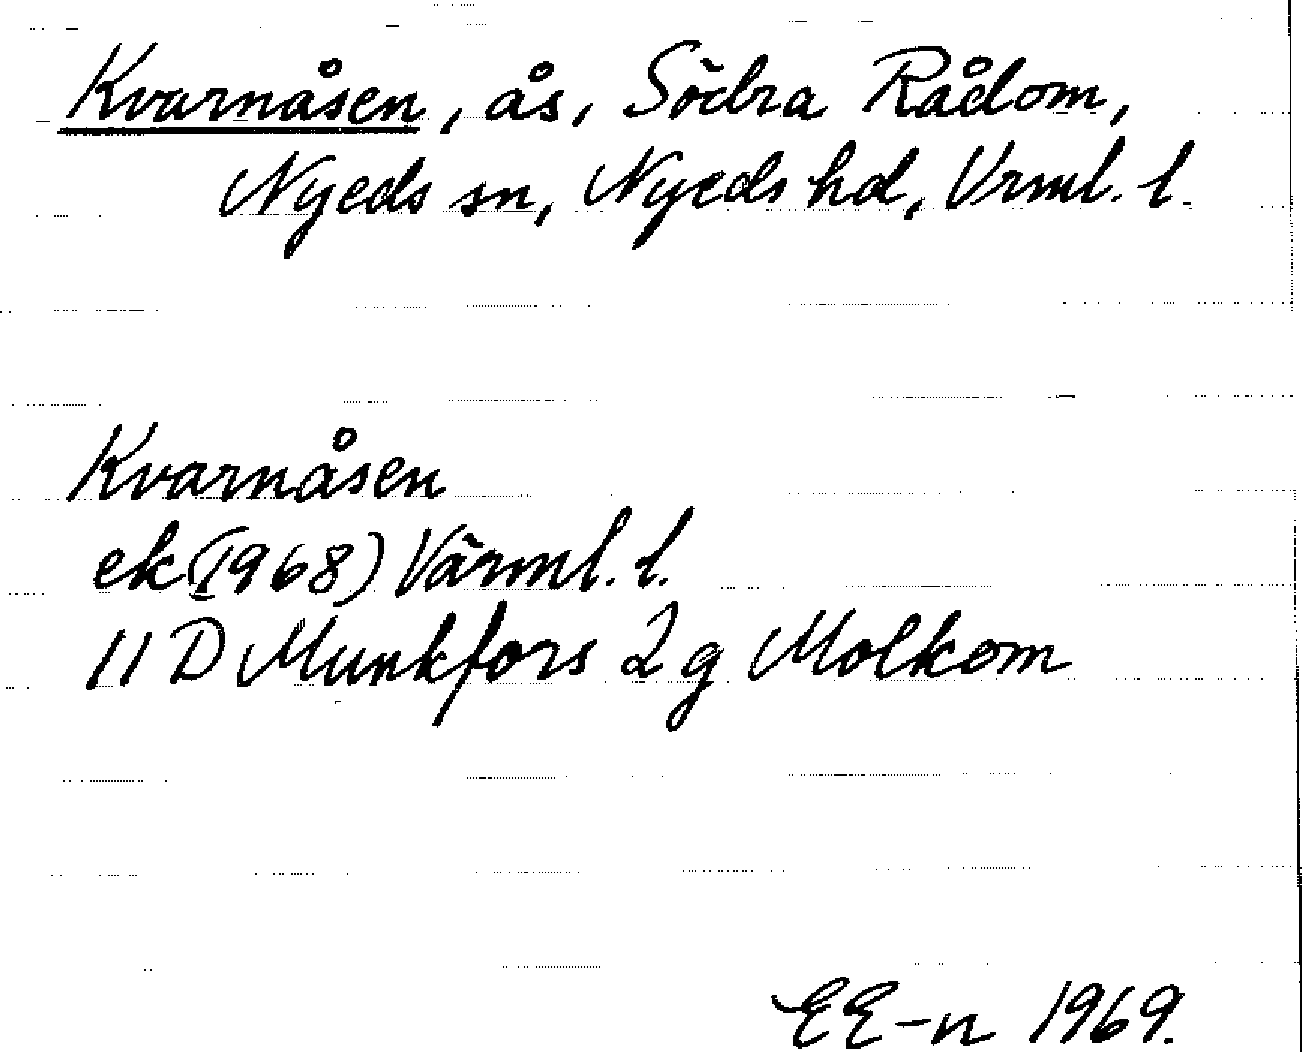 Kvarnåsen, ås, Södra Rådom,
Nyeds sn, Nyeds hd, Vrml. l.
Kvarnåsen
ek (1968) Värml. l.
11 D Munkfors 2 g Molkom
EE-n 1969.